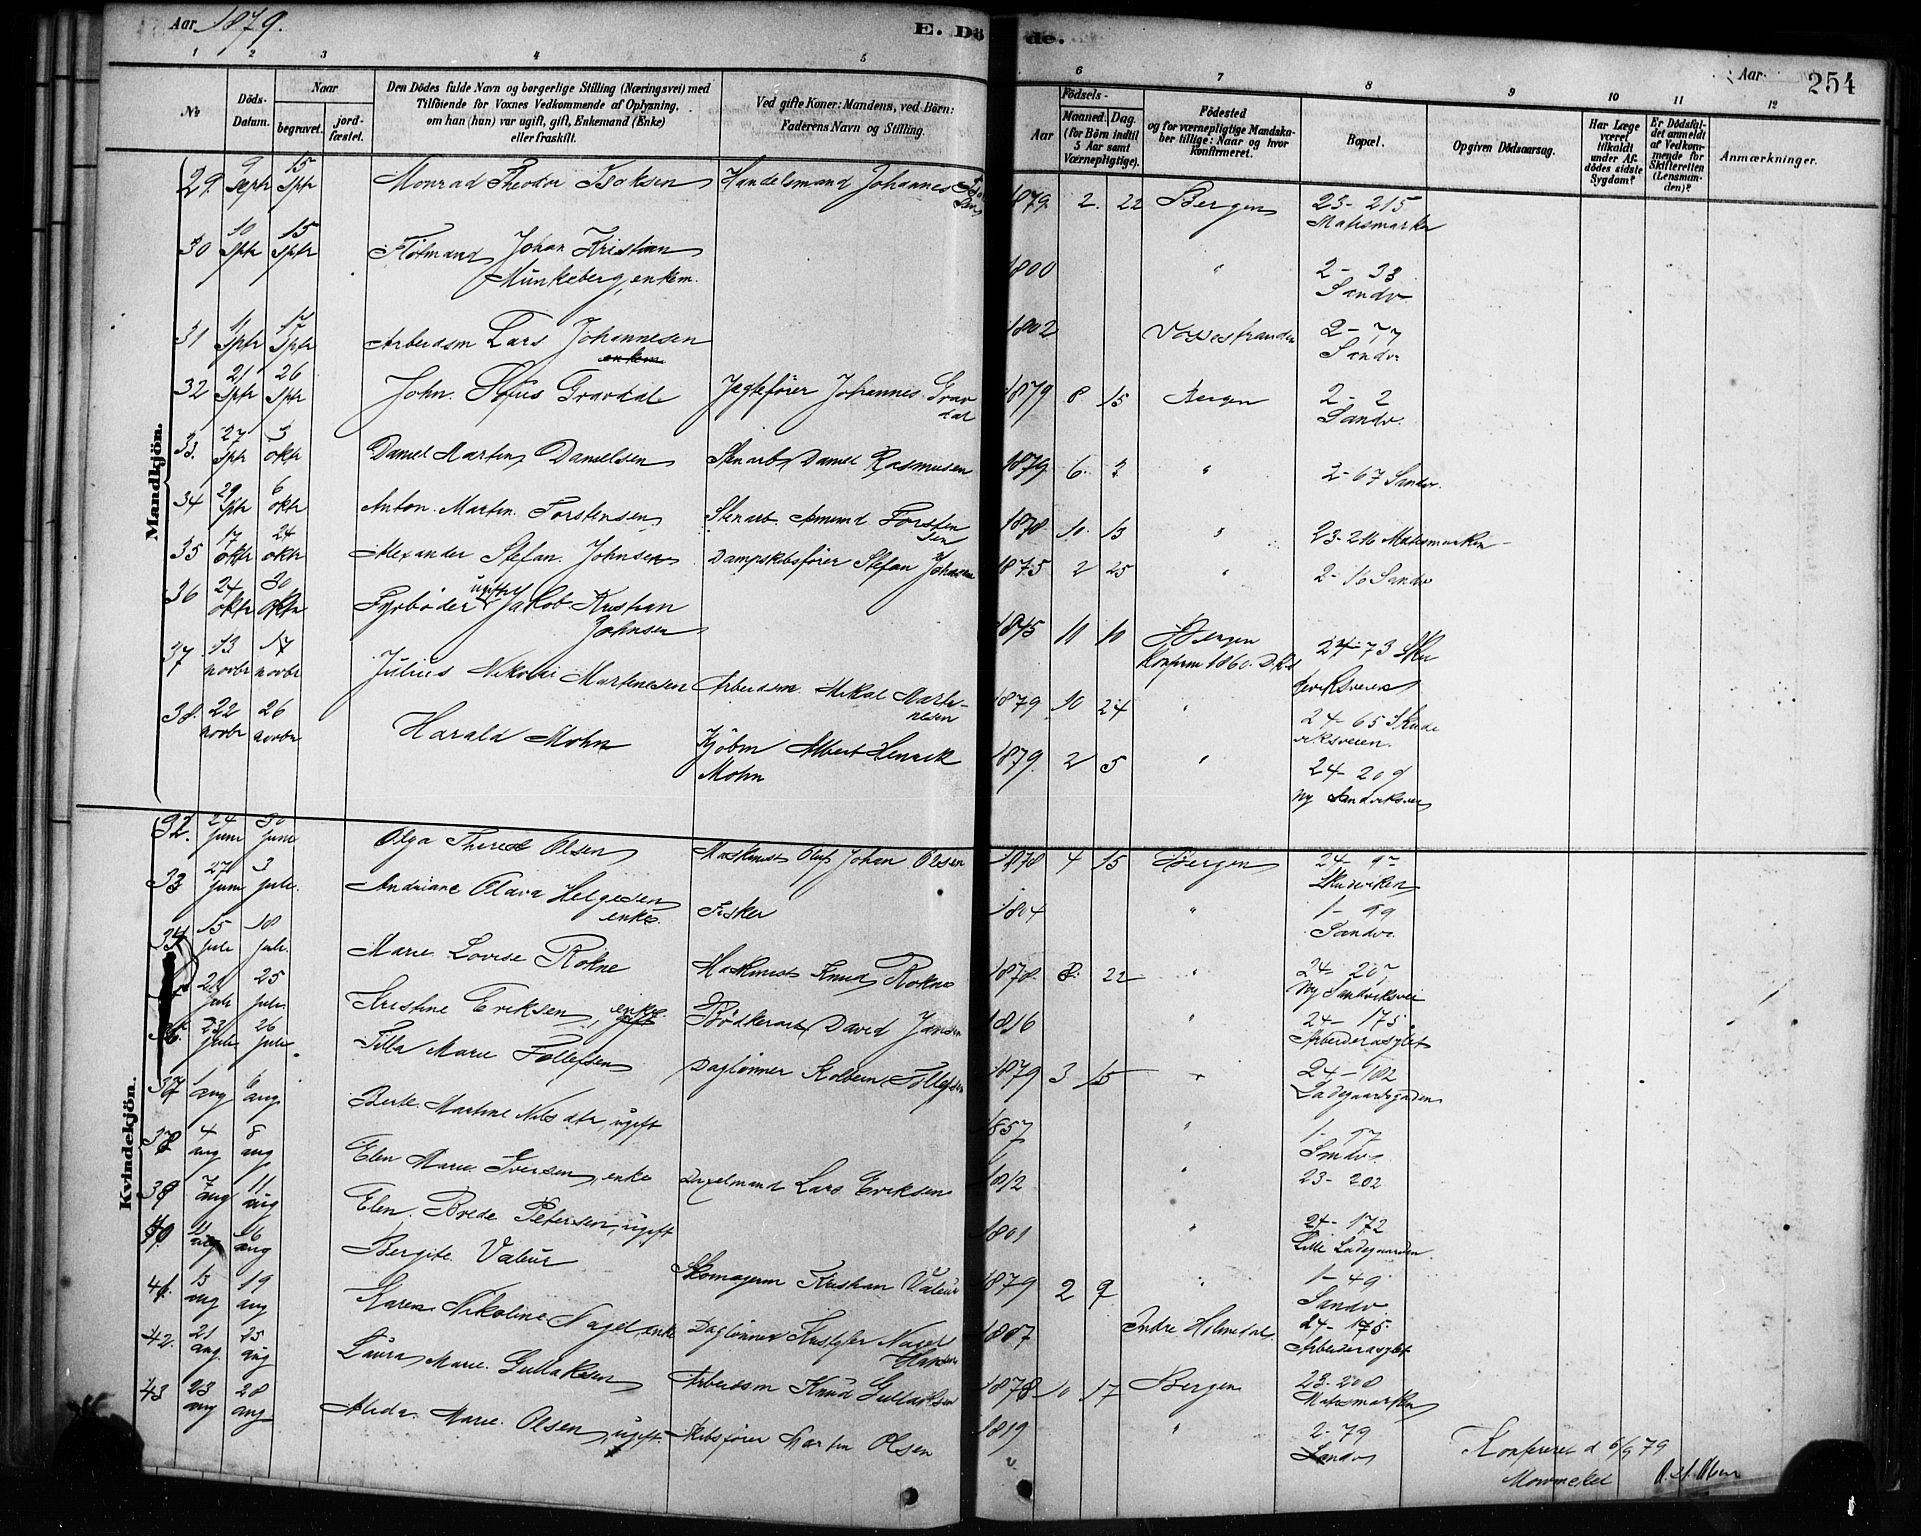 Aar 1879.
E. Döde.
Aar
254
1 2 3 4 5 6 7 8 9 10 11 12
No
Döds-Datum.
Naar
begravet.
jordfæstet.
Den Dödes fulde Navn og borgerlige Stilling (Næringsvei) med
Tilföiende for Voxnes Vedkommende af Oplysning,
om han (hun) var ugift, gift, Enkemand (Enke)
eller fraskilt.
Ved gifte Koner: Mandens, ved Börn:
Faderens Navn og Stilling.
Födsels-
Aar
Maaned. Dag.
(for Börn indtil
5 Aar samt
Værnepligtige).
Födested
og for værnepligtige Mandskaber
tillige: Naar og hvor
konfirmeret.
Bopæl.
Opgiven Dödsaarsag.
Har Læge
været
tilkaldt
under Afdödes
sidste
Sygdom?
Er Dödsfaldet
anmeldt
af Vedkommende
for
Skifteretten
(Lensmanden)?
Anmærkninger.
Mandkjön.
29. 9 Septr 15 Sptr Monrad Theodor Isaksen Handelsmand Johannes 1879. 2. 22 Bergen 23-215 Matismarken
30 10 Sptr 15 Sptr Flötmand Johan Kristian Munkeberg, enkem. 1800 " 2-33 Sandv
31 Sptr 17 Sptr Arbeidsm Lars Johannesen 1802 Vossestranden 2-77 Sandv
32 21 Sptr 26 Sptr John. Gravdal Jegtefører Johannes Gravdal 1879 8 15 Bergen 2-2 Sandv.
33. 27 Sptr 3 oktr Daniel Martin Danielsen Stenarb Daniel Rasmusen 1879 6. " 2-67 Sandv.
34 29 Sptr 6 oktr Anton. Martin. Torstensen Stenarb. Amund Torstensen 1878 10. 13 " 23-216 Matismarken
35 17 oktr 24 oktr Alexander Stefan Johnsen Dampskibsfører Stefan Johnsen 1875 2 25 " 2-10 Sandv
36 24 oktr 30 oktr Fyrbøder ugift Jakob Kristian Johnsen 1845 11 10 Bergen Konfirm 1860. 24-73 Skudeviksveien
37 13 novbr 17 novbr Julius Nikolai Martinesen Arbeidsm. Mikal Martinesen 1879 10 24 " 24-65 Skudeviksveien.
38. 22 novbr 26 novbr Harald Mohn Kjøbm Albert Henrik Mohn 1879. 2 5 " 24-209 Ny Sandviksvei
Kvindekjön.
32. 24 Juni 30 Juni Olga Therese Olsen Maskinist Oluf Johan Olsen 1878 4 15 Bergen 24-97 Skudeviken
33 27 Juni 3 Juli. Andriane Olava Helgesen enke Fisker 1804 " 1-99 Sandv.
34 15 Juli 18 Juli. Marie Lovise Rokne Maskinist Knud Rokne 1878. 8. 22 " 24-207 Ny Sandviksvei
21 Juli 25 Juli. Kristine Eriksen, enke Bødkerarb David Jansen 1816 " 24-175. Arbeiderasylet
36. 23 Juli 26 Juli. Tilla Marie Tollefsen Daglønner Kolbein Tollefsen 1879 3 15 " 24-182 Ladegaardsgaden
37 1 aug 6 aug. Berte. Martine Nilsdtr, ugift 1857 " 1-97 Sandv.
38 4 aug 8 aug Elen Marie Iversen, enke Dixelmand Lars Eriksen 1812 " 23-202
39 7 aug 11 aug Elen. Brede Petersen, ugift 1801 " 24-172 Lille Ladegaarden.
40. 11 aug 16 aug Bergite Valeur Skomagerm Kristian Valeur 1879 2 9 " 1-49 Sandv
41. 13 aug 19 aug Karen Nikoline Nagel, enke Dagløner Kristofer Nagel Hansen 1807 Indre Holmedal. 24-175. Arbeiderasylet
42. 21 aug. 25 aug Laura Marie. Gullaksen Arbeidsm Knud Gullaksen 1878. 10 17 Bergen 23-208 Matismarken
43 23 aug 28 aug Alida. Marie. Olsen, ugift Skibsfører Martin Olsen 1819 " 2-79 Sandv
Konfereret d 6/9 79